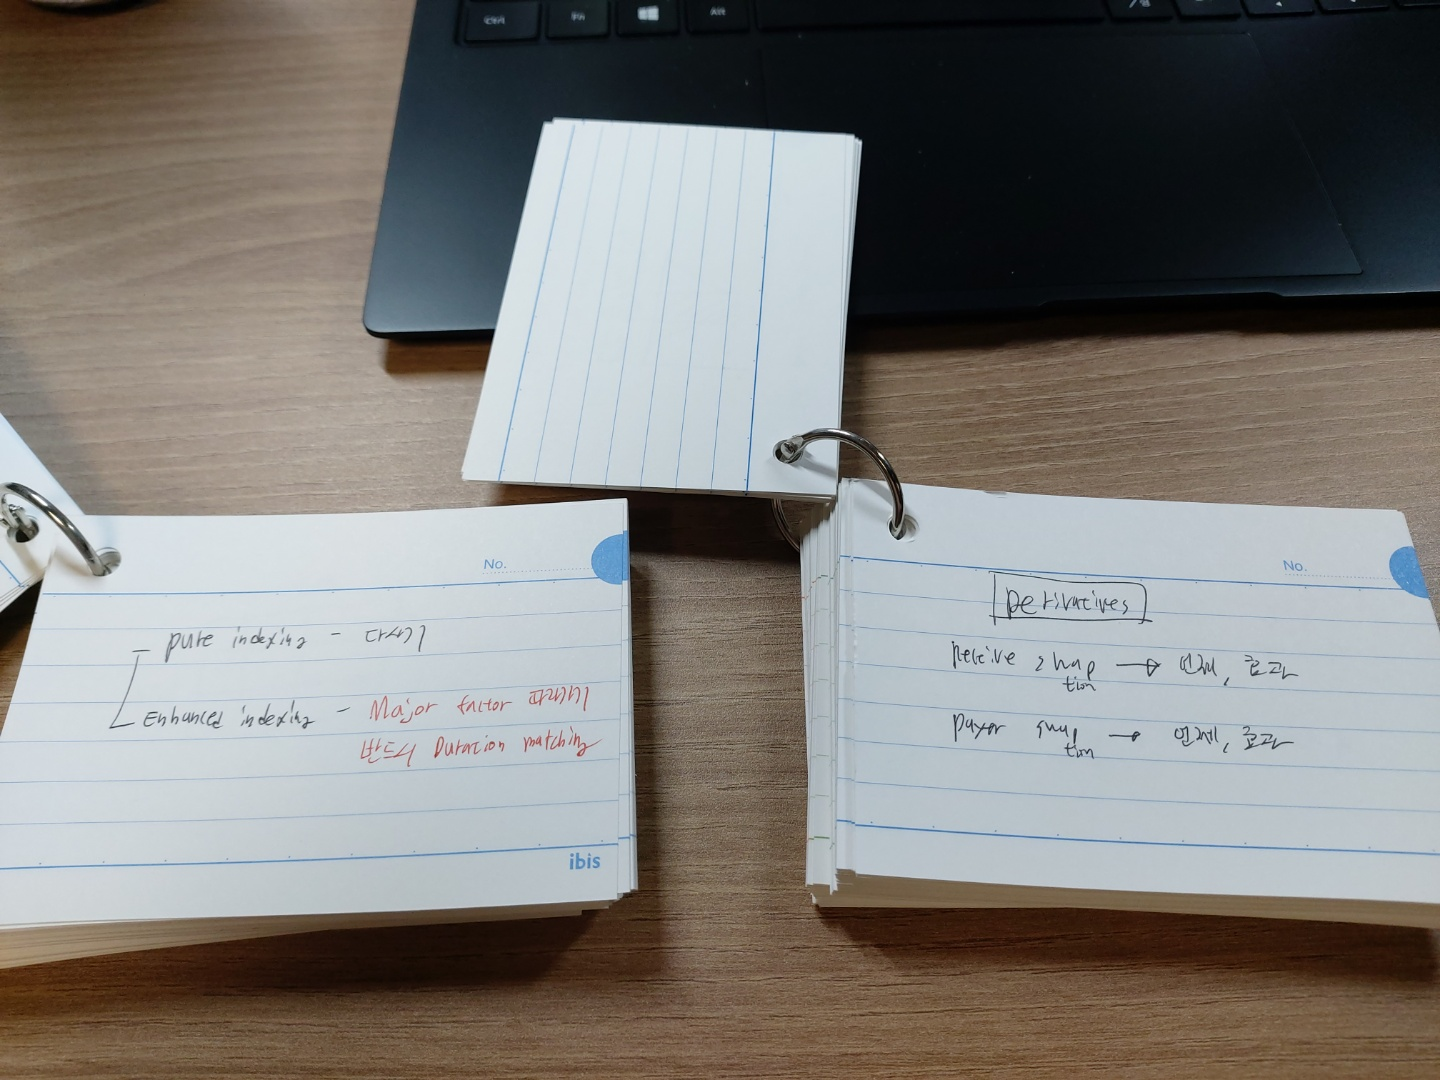 Ctrl Fn Alt
No.
pure indexing - 다사기
Enhanced indexing - Major factor 따라가기
반드시 Duration matching
ibis
No.
Derivatives
Receive swap → 언제, 효과
tion
Payor swap → 언제, 효과
tion